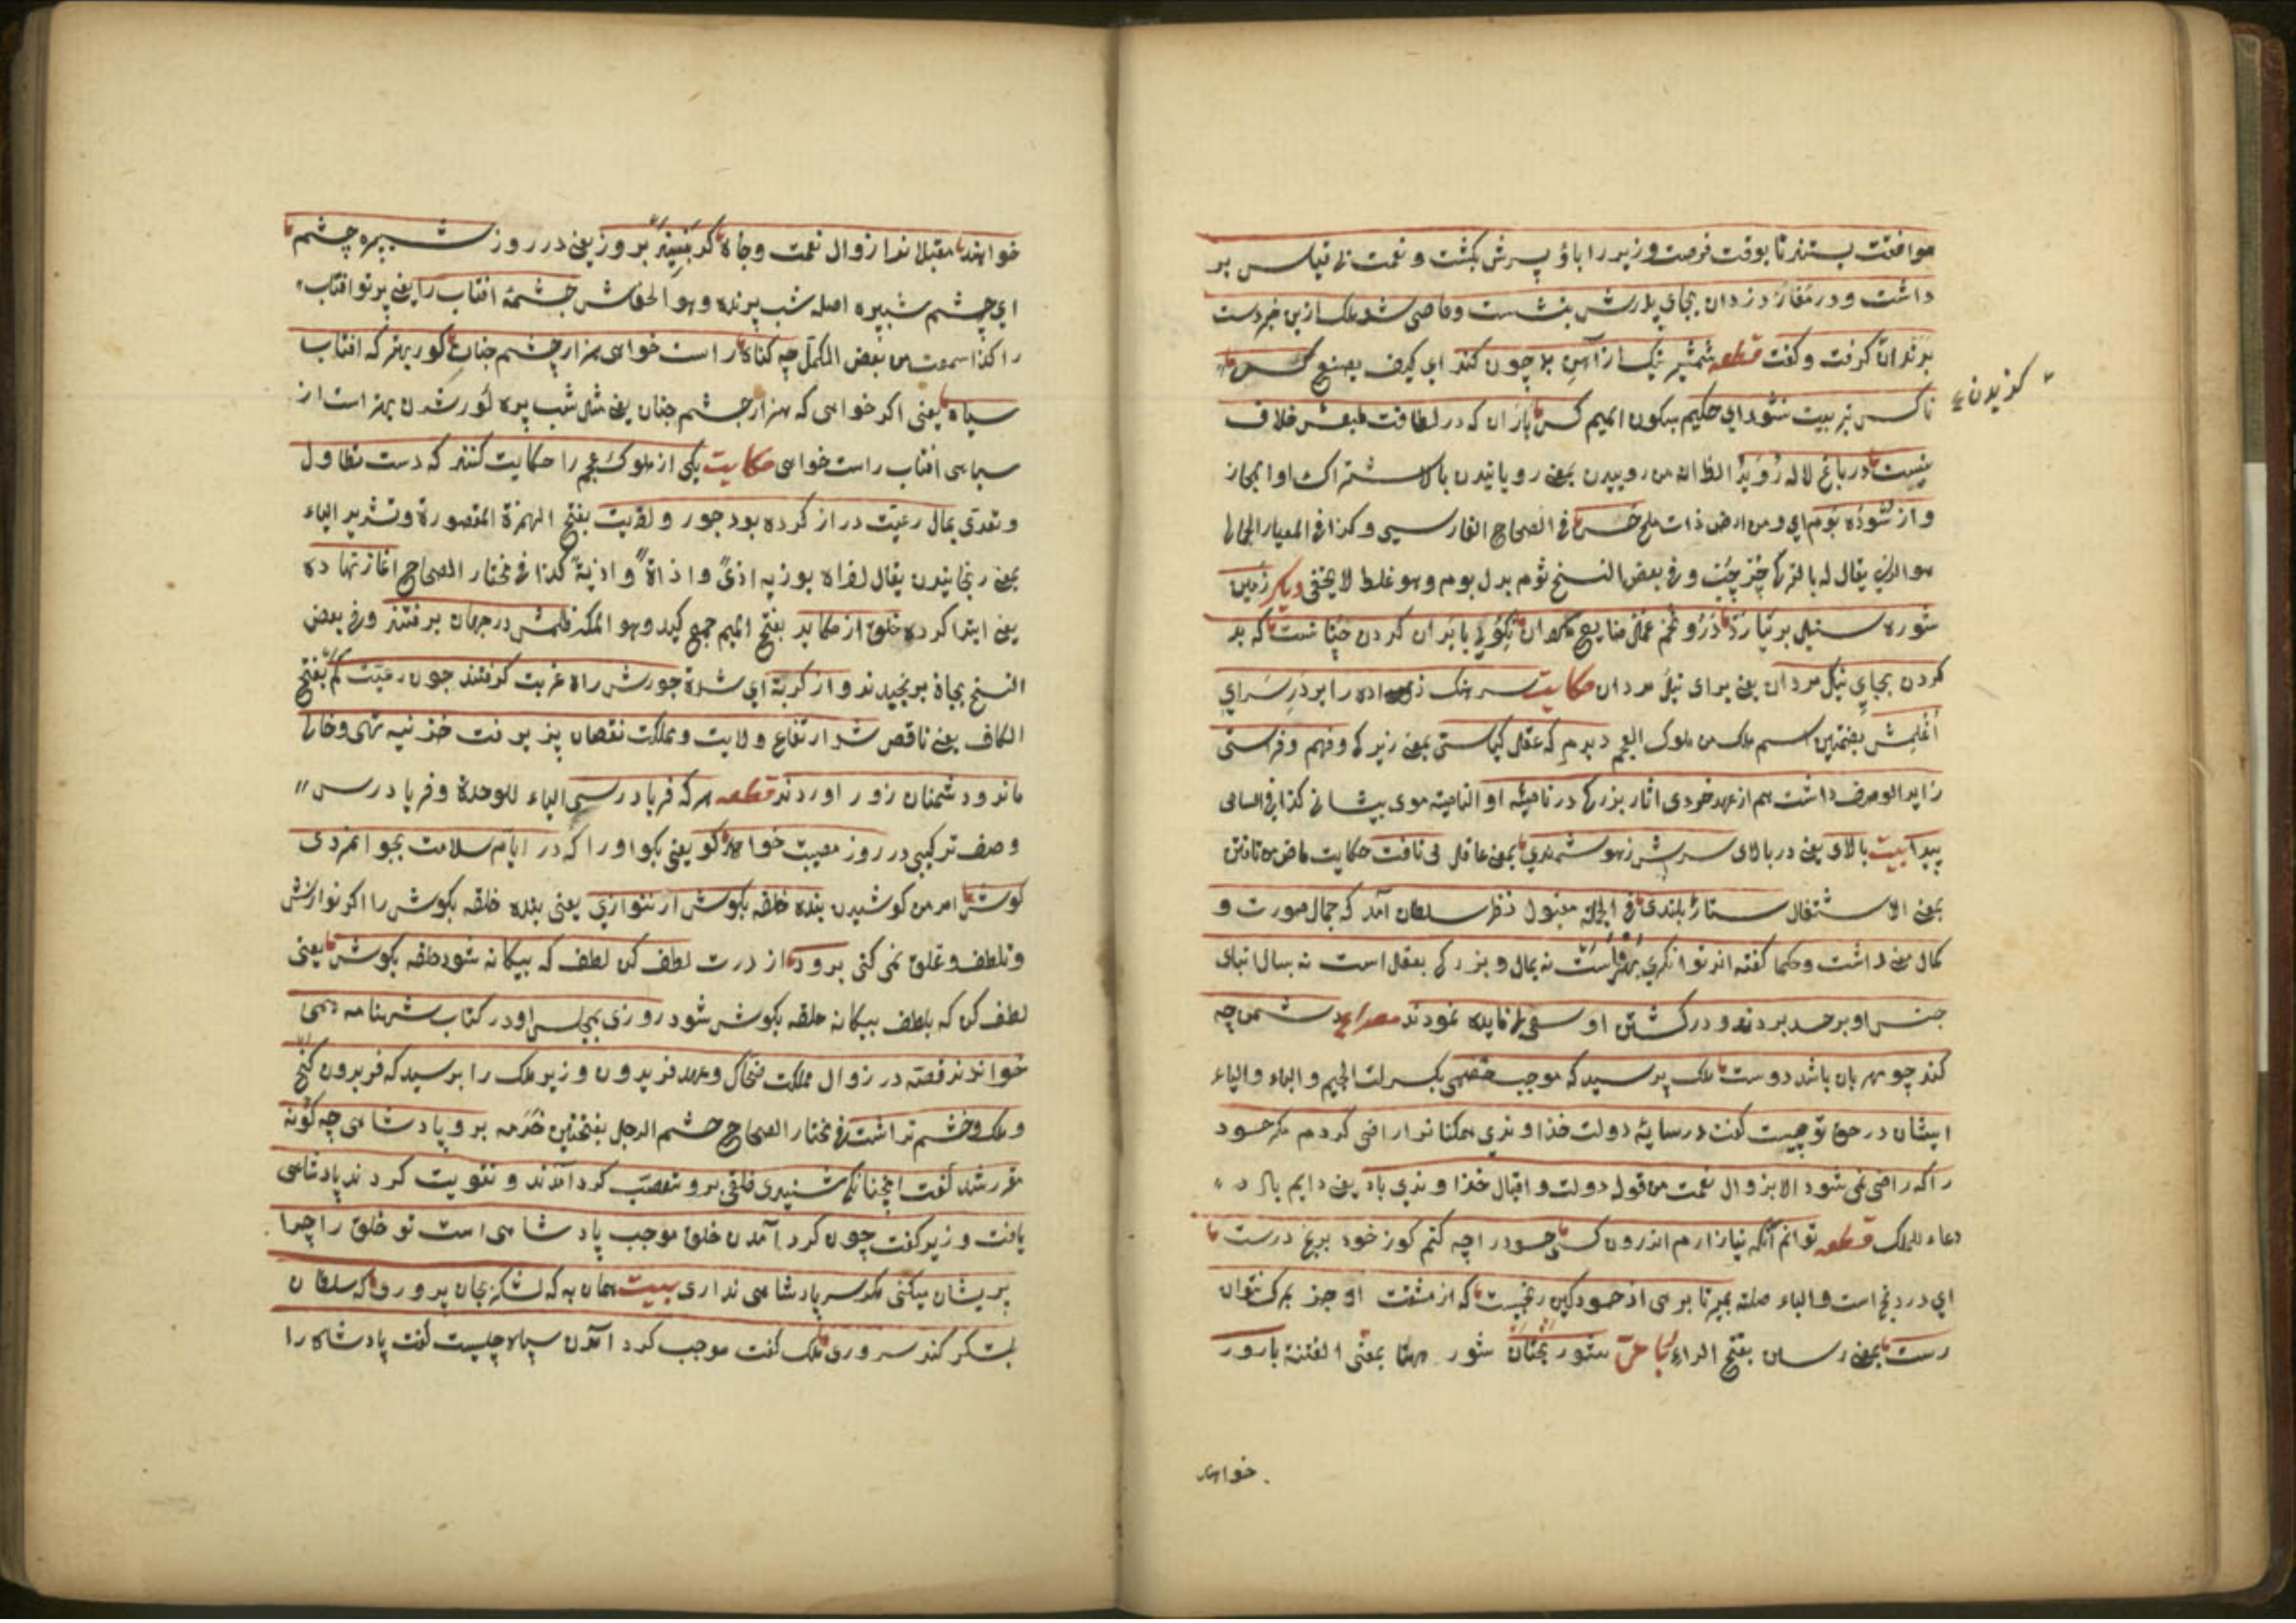 موافقت بستند تا بوقت فرصت وزیر را با دو پسرش بکشت و نعمت بی قیاس بر
داشت و در مغاره دزدان بجای پدرش بنشست و عاصی شد ملک ازین خبر دست
بدندان کرفت و کفت قطعه شمشیر نیک از آهن بد چون کند ای کیف یصنع کسی
کزیدن
ناکس بتربیت نشود ای حکیم بسکون المیم کس باران که در لطافت طبعش خلاف
نیست در باغ لاله روید الظ انه من روییدن بمعنی رویانیدن بالاشتراک او المجاز
و از شوره بوم ای ومن ارض ذات ملح خس فی الصحاح الفارسی وکذا فی المعیار الجمالی
هو الذی یقال له بالترکی وفی بعض النسخ شوم بدل بوم وهو غلط لا یخفی دیکر زمین
شوره سنبل بر نیارد درو تخم عمل ضایع مکردان نکویی با بدان کردن چنانست که بد
کردن بجای نیک مردان یعنی برای نیک مردان حکایت سرهنک زاده را بر در سرای
اغلمش بضمتین اسم ملک من ملوک العجم دیدم که عقل کیاستی بمعنی زیرکی و فهم و فراستی
زاید الوصف داشت هم از عهد خردی اثار بزرکی در ناصیه او الناصیة موی پیشانی کذا فی السامی
پیدا بیت بالای یعنی در بالای سرش زهوشمندی بمعنی عاقلی می تافت حکایت ماض من تافتن
بمعنی الاشتعال ستاره بلندی فی الجمله مقبول نظر سلطان آمد که جمال صورت و
کمال معنی داشت و حکما کفته اند توانکری بهنراست نه بمال و بزرکی بعقل است نه بسال ابنای
جنس او بر حسد بردند و در کشتن او سعی بی فایده نمودند مصراع دشمن چه
کند چو مهربان باشد دوست ملک پرسید که موجب خصمی بکسرات الجیم والباء والیاء
ایشان در حق تو چیست کفت در سایه دولت خداوندی همکنانرا راضی کردم مکر حسود
را که راضی نمی شود الا بزوال نعمت من قوله دولت و اقبال خداوندی باد یعنی دایم باد
دعاء للملک قطعه توانم آنکه نیازارم اندرون کسی حسود را چه کنم کوز خود برنج درست
ای در رنج است والباء صله بمیر تا برهی ای حسود کین رنجیست که از مشقت او جز بمرک نتوان
رست بمعنی رستن بفتح الراء شور بختان شور ههنا بمعنی الفتنة بارزو
خواهند
خواهند مقبلانرا زوال نعمت و جاه کر نبیند بروز یعنی در روز شبپره چشم
ای چشم شبپره اصله شب پرنده وهو الخفاش چشمه افتاب را یعنی پرتو افتاب
را کذا سمعت من بعض الکمل چه کناه راست خواهی هزار چشم چنان کور بهتر که افتاب
سیاه یعنی اکر خواهی که هزار چشم چنان یعنی مثل شب پره کور شدن بهتر است از
سیاهی افتاب راست خواهی حکایت یکی از ملوک عجم را حکایت کنند که دست تطاول
و تعدی بمال رعیت دراز کرده بود جور و اذیت بفتح الهمزة المقصورة وتشدید الیاء
بمعنی رنجانیدن یقال اذاه یوذیه اذی واذاة واذیة کذا فی مختار الصحاح اغاز نهاده
یعنی ابتدا کرده خلق از مکاید بفتح المیم جمع کید وهو المکر فعلش در جهان برفتند وفی بعض
النسخ بجان برنجیدند و از کربت ای شدة جورش راه غربت کرفتند چون رعیت کم بفتح
الکاف یعنی ناقص شد ارتفاع ولایت و مملکت نقصان پذیرفت خزنیه تهی و خالی
ماند و دشمنان زور اوردند قطعه هر که فریادرسی الیاء للوحدة و فریادرس
وصف ترکیبی در روز مصیبت خواهد کو یعنی بکو اورا که در ایام سلامت بجوانمردی
کوش امر من کوشیدن بنده حلقه بکوش ار ننوازی یعنی بنده حلقه بکوش را اکر نوازش
و تلطف و تملق نمی کنی برود از درت لطف کن لطف که بیکانه شود حلقه بکوش یعنی
لطف کن که بلطف بیکانه حلقه بکوش شود روزی بمجلس او در کتاب شهنامه همی
خواندند قصه در زوال مملکت ضحاک و عهد فریدون وزیر ملک را پرسید که فریدون کنج
و ملک و حشم نداشت فی مختار الصحاح حشم الرجل بفتحتین خدمه برو پادشاهی چه کونه
مقرر شد کفت انچنانکه شنیدی خلقی برو بتعصب کرد آمدند و تقویت کردند پادشاهی
یافت وزیر کفت چون کرد آمدن خلق موجب پادشاهی است تو خلق را چرا
پریشان میکنی مکر سر پادشاهی نداری بیت همان به که لشکر بجان پروری که سلطان
بلشکر کند سروری ملک کفت موجب کرد آمدن سپاه چیست کفت پادشاه را